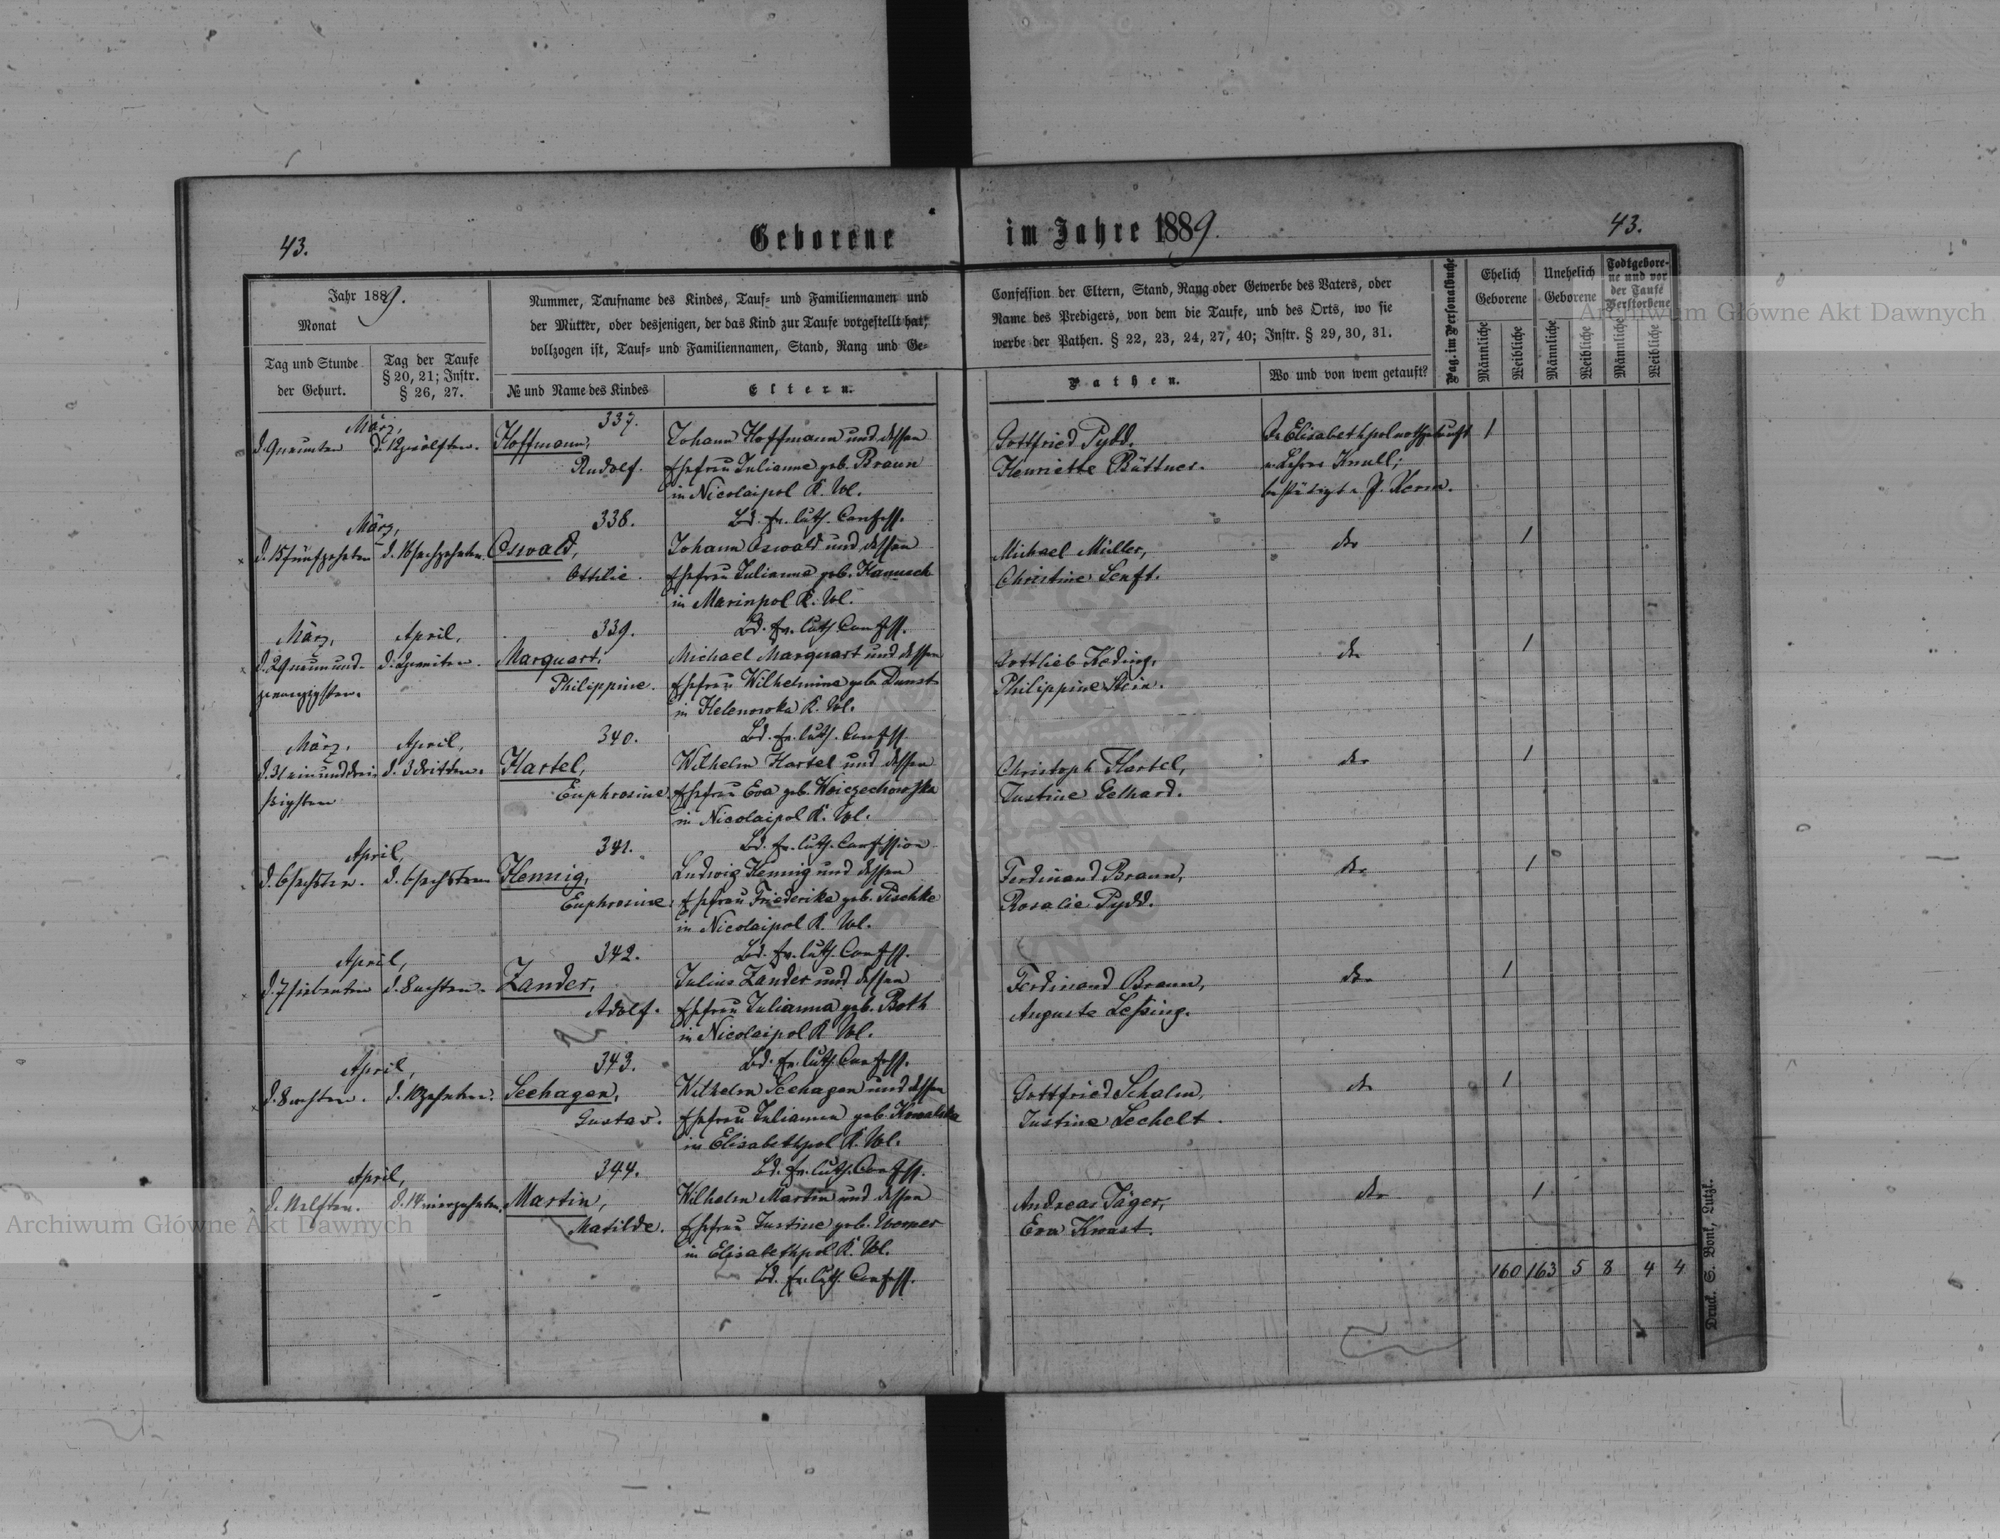 43.
Geborene
im Jahre 1889.
43.
Jahr 1889.
Monat
Tag und Stunde
der Geburt.
Tag der Taufe
§ 20, 21; Instr.
§ 26, 27.
Nummer, Taufname des Kindes, Tauf- und Familiennamen und
der Mütter, oder desjenigen, der das Kind zur Taufe vorgestellt hat;
vollzogen ist, Tauf- und Familiennamen, Stand, Rang und Ge-
№ und Name des Kindes
Eltern.
Confession der Eltern, Stand, Rang oder Gewerbe des Vaters, oder
Name des Predigers, von dem die Taufe, und des Orts, wo sie
werbe der Pathen. § 22, 23, 24, 27, 40; Instr. § 29, 30, 31.
Pathen.
Wo und von wem getauft?
Pag. im Personalbuche
Ehelich
Geborene
Unehelich
Geborene
Todtgebore-
ne und vor
der Taufe
Verstorbene
Männliche
Weibliche
Männliche
Weibliche
Männliche
Weibliche
März,
d. 9 neunten
d. 12 zwölften.
337.
Hoffmann,
Rudolf.
Johann Hoffmann und dessen
Ehefrau Julianne geb. Braun
in Nicolaipol K. Wl.
Bd. ev. luth. Confess.
Gottfried Pydd.
Henriette Büttner.
In Elisabethpol nothgetauft
v. Lehrer Knull;
bestätigt v. P. Kerm.
1
März,
d. 15 fünfzehnten
d. 16 sechzehnten.
338.
Oswald,
Ottilie.
Johann Oswald und dessen
Ehefrau Julianna geb. Hanusch
in Marinpol K. Wl.
Bd. ev. luth. Confess.
Michael Müller,
Christine Senft.
do
1
März,
d. 29 neunund-
zwanzigsten.
April,
d. 2 zweiten.
339.
Marquart,
Philippine.
Michael Marquart und dessen
Ehefrau Wilhelmina geb. Dunst
in Helenowka K. Wl.
Bd. ev. luth. Confess.
Gottlieb Keding,
Philippine Stein.
do
1
März.
d. 31 einunddrei-
ssigsten
April,
d. 3 dritten.
340.
Hartel,
Euphrosine.
Wilhelm Hartel und dessen
Ehefrau Eva geb. Woiczechowska
in Nicolaipol K. Wl.
Bd. ev. luth. Confession
Christoph Hartel,
Justine Gelhard.
do
1
April,
d. 6 sechsten.
d. 6 sechsten
341.
Hennig,
Euphrosine.
Ludwig Hennig und dessen
Ehefrau Friederike geb. Pischke
in Nicolaipol K. Wl.
Bd. ev. luth. Confess.
Ferdinand Braun,
Rosalie Pydd.
do
1
April,
d. 7 siebenten
d. 8 achten.
342.
Zander,
Adolf.
Julius Zander und dessen
Ehefrau Julianna geb. Both
in Nicolaipol K. Wl.
Bd. ev. luth. Confess.
Ferdinand Braun,
Auguste Lessing.
do
1
April,
d. 8 achten.
d. 10 zehnten.
343.
Seehagen,
Gustav.
Wilhelm Seehagen und dessen
Ehefrau Julianna geb. Kowalska
in Elisabethpol K. Wl.
Bd. ev. luth. Confess.
Gottfried Schalm,
Justine Lechelt.
do
1
April,
d. 11 elften.
d. 14 vierzehnten.
344.
Martin,
Matilde.
Wilhelm Martin und dessen
Ehefrau Justine geb. Werner
in Elisabethpol K. Wl.
Bd. ev. luth. Confess.
Andreas Jäger,
Eva Kwast.
do
1
160 163 5 8 4 4
Druck. S. Bonk, Lutzk.
Archiwum Główne Akt Dawnych
Archiwum Główne Akt Dawnych